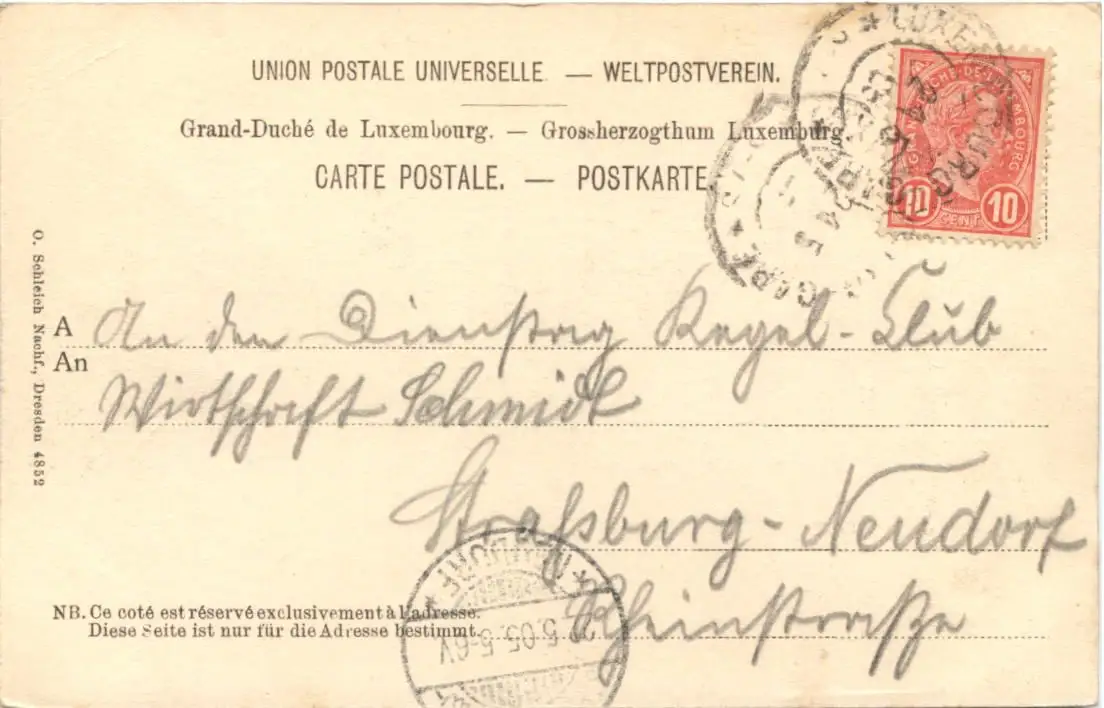 UNION POSTALE UNIVERSELLE — WELTPOSTVEREIN.
Grand-Duché de Luxembourg. — Grossherzogthum Luxemburg.
CARTE POSTALE. — POSTKARTE.
GRAND-DUCHÉ-DE-LUXEMBOURG
10 CENT. 10
LUXEMBOURG
GARE
O. Schleich Nachf., Dresden 4852
A An den Dienstag Kegel-Club
An
Wirthschaft Schmidt
Straßburg-Neudorf
Rheinstraße
NEUDORF
5.05.5-6V
NB. Ce coté est réservé exclusivement à l'adresse.
Diese Seite ist nur für die Adresse bestimmt.